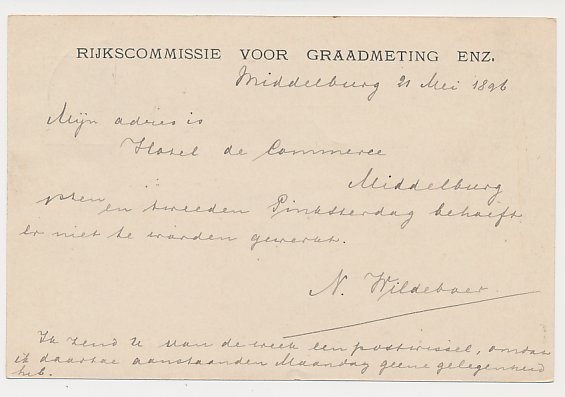 RIJKSCOMMISSIE VOOR GRAADMETING ENZ.
Middelburg 21 Mei 1896
Mijn adres is
Hotel de Commerce
Middelburg
en tweeden Pinksterdag behoeft
er niet te worden gewerkt.
N. Wildeboer
Ik zend U van de week een postwissel, omdat
ik daartoe aanstaanden Maandag geene gelegenheid
heb.